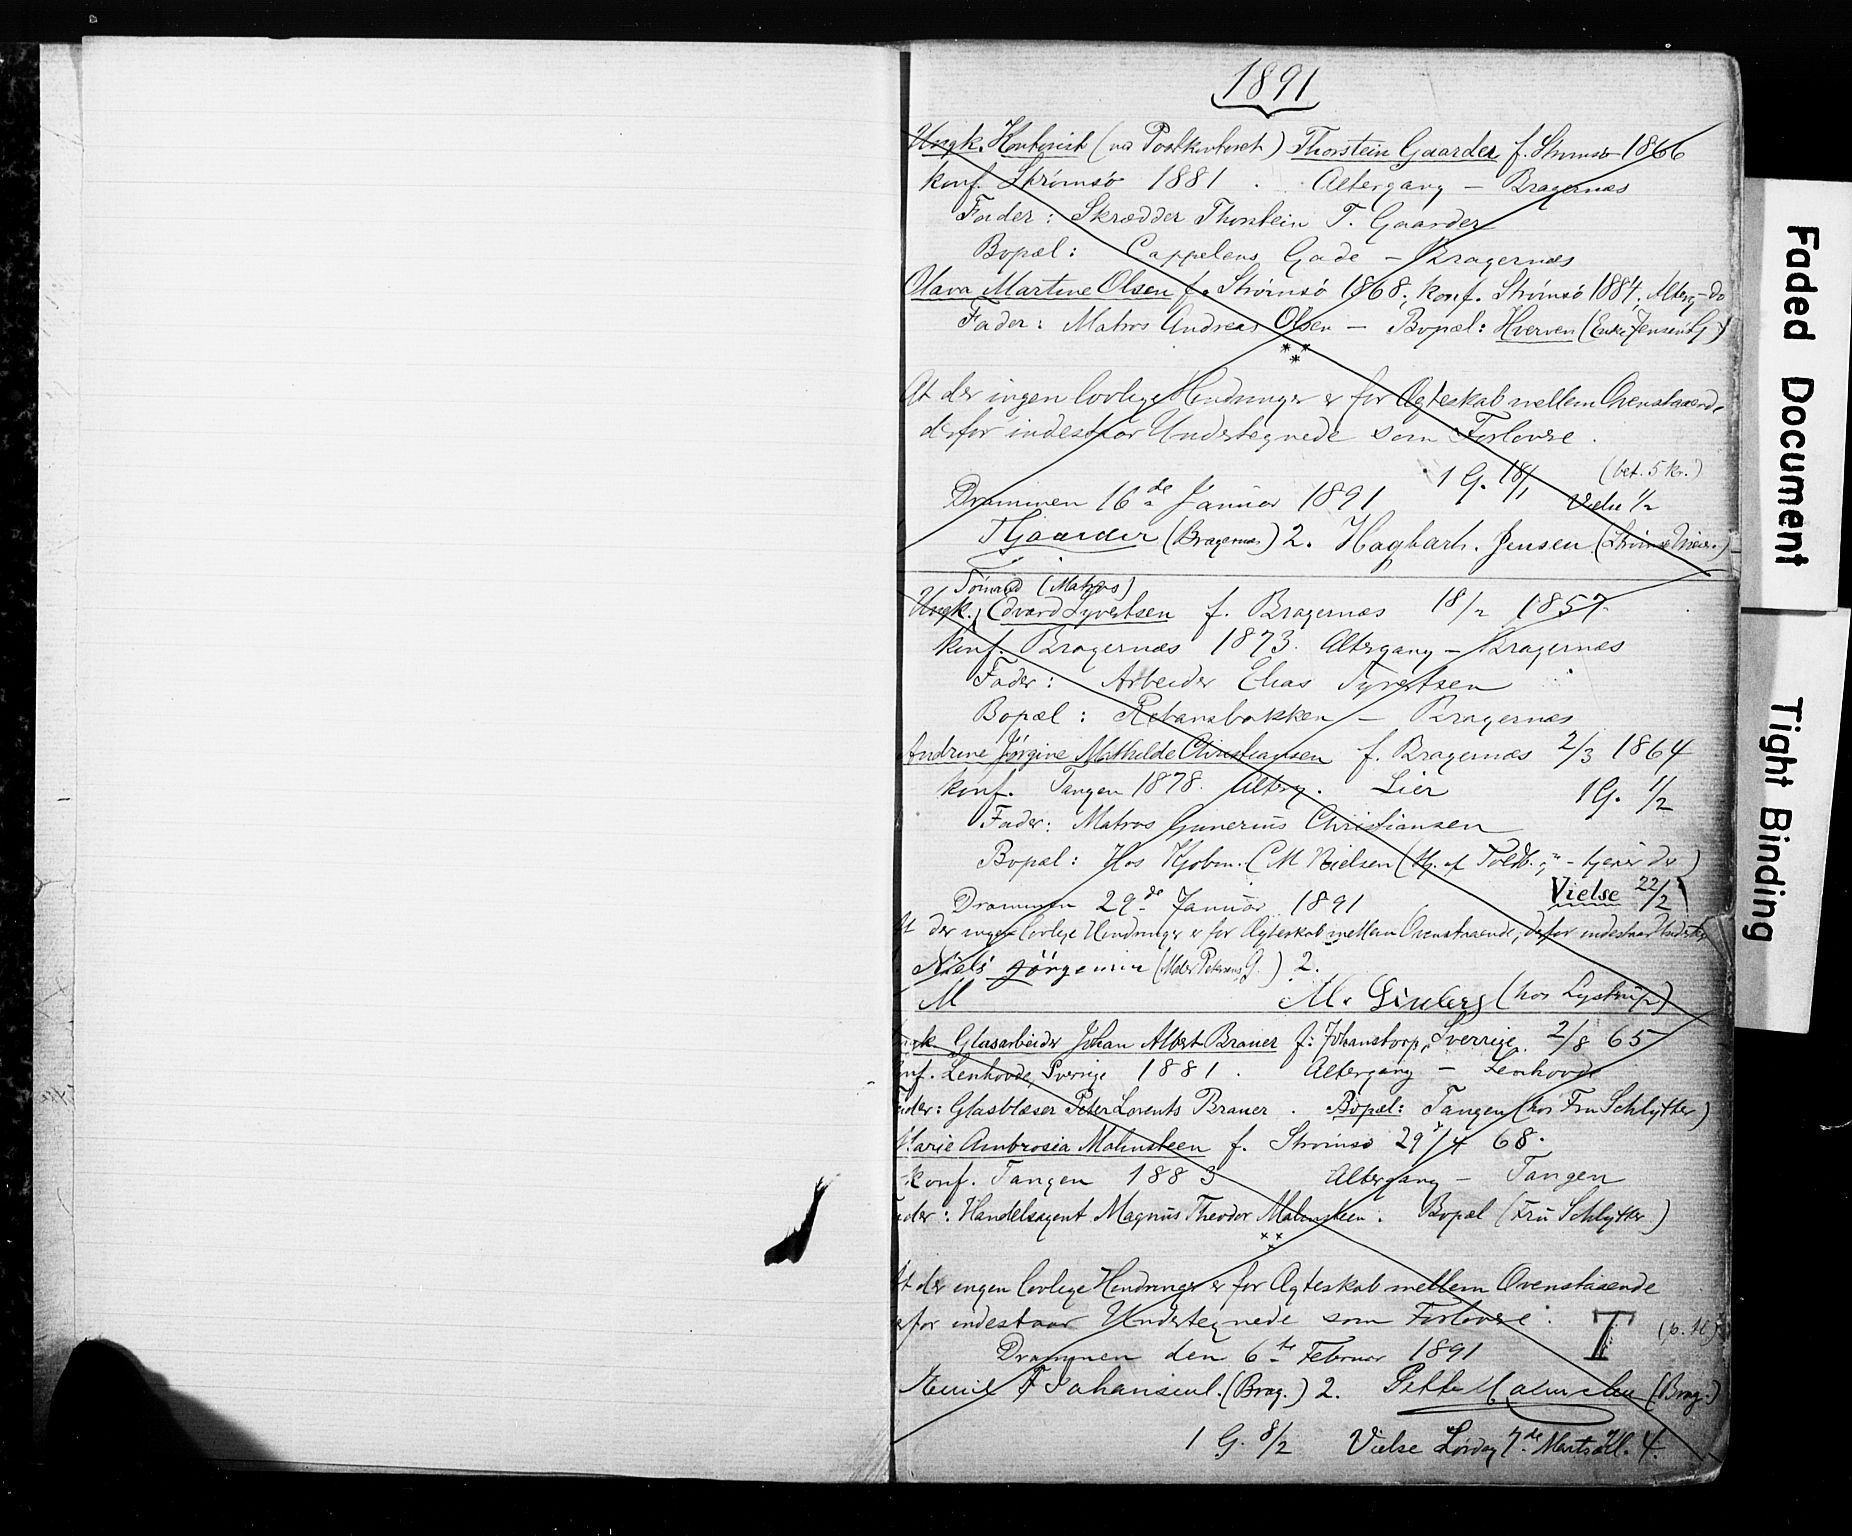 1891
Ungk. Kontorist (ved Postkontoret) Thorstein Gaarder f. Strømsø 1866
konf. Strømsø 1881 . Altergang – Bragernæs
Fader: Skrædder Thorstein T. Gaarder
Bopæl: Cappelens Gade – Bragernæs
Olava Martine Olsen f. Strømsø 1868. konf. Strømsø 1884, Alterg – do
Fader: Matros Andreas Olsen – Bopæl: Hverven (Enke Jensens G)
At der ingen lovlige Hindringer er for Ægteskab mellem Ovenstaaende,
derfor indestaar Undertegnede som Forlovere.
1 G. 18/1 (bet. 5 kr.)
Drammen 16de Januar 1891 Vielse 1/2
TGaarder (Bragernæs) 2. Hagbarth. Jensen (Strømsø)
Tømmd (Matros)
Ungk. Edvard Syvertsen f. Bragernæs 18/2 1857
konf. Bragernæs 1873. Altergang – Bragernæs
Fader: Arbeider Elias Syvertsen
Bopæl: Rebansbakken – Bragernæs
Andrine Jørgine Mathilde Christiansen f. Bragernæs 2/3 1864
konf. Tangen 1878. Alterg. Lier 1 G. 1/2
Fader: Matros Gunerius Christiansen
Bopæl: Hos Kjøbm. C M Nielsen (Hj. af Toldb. – tjener der)
Vielse 22/2
Drammen 29de Januar 1891
At der ingen lovlige Hindringer er for Ægteskab mellem Ovenstaaende, derfor indestaar Undertg
Niels Jörgensen (Maler Petersens G.) 2.
M M. Ginberg (hos Lystrup)
Ungk. Glasarbeider Johan Albert Brauer f: Johanstorp, Sverrige 2/8 65
konf. Lenhovda, Sverige 1881. Altergang – Lenhovda
Fader: Glasblæser Peter Lorents Brauer. Bopæl: Tangen (hos Fru Schlytter)
Marie Ambrosia Malmsteen f. Strømsø 29/4 68.
konf. Tangen 1883 Altergang – Tangen
Fader: Handelsagent Magnus Theodor Malmsteen. Bopæl (Fru Schlytter)
At der ingen lovlige Hindringer er for Ægteskab mellem Ovenstaaende
derfor indestaar Undertegnede som Forlovere. T
Drammen den 6te Februar 1891
Emil F Johansen. (Brag.) 2. (Brag.)
1 G. 8/2 Vielse Lørdag 7de Marts Kl. 4.
Faded Document
Tight Binding